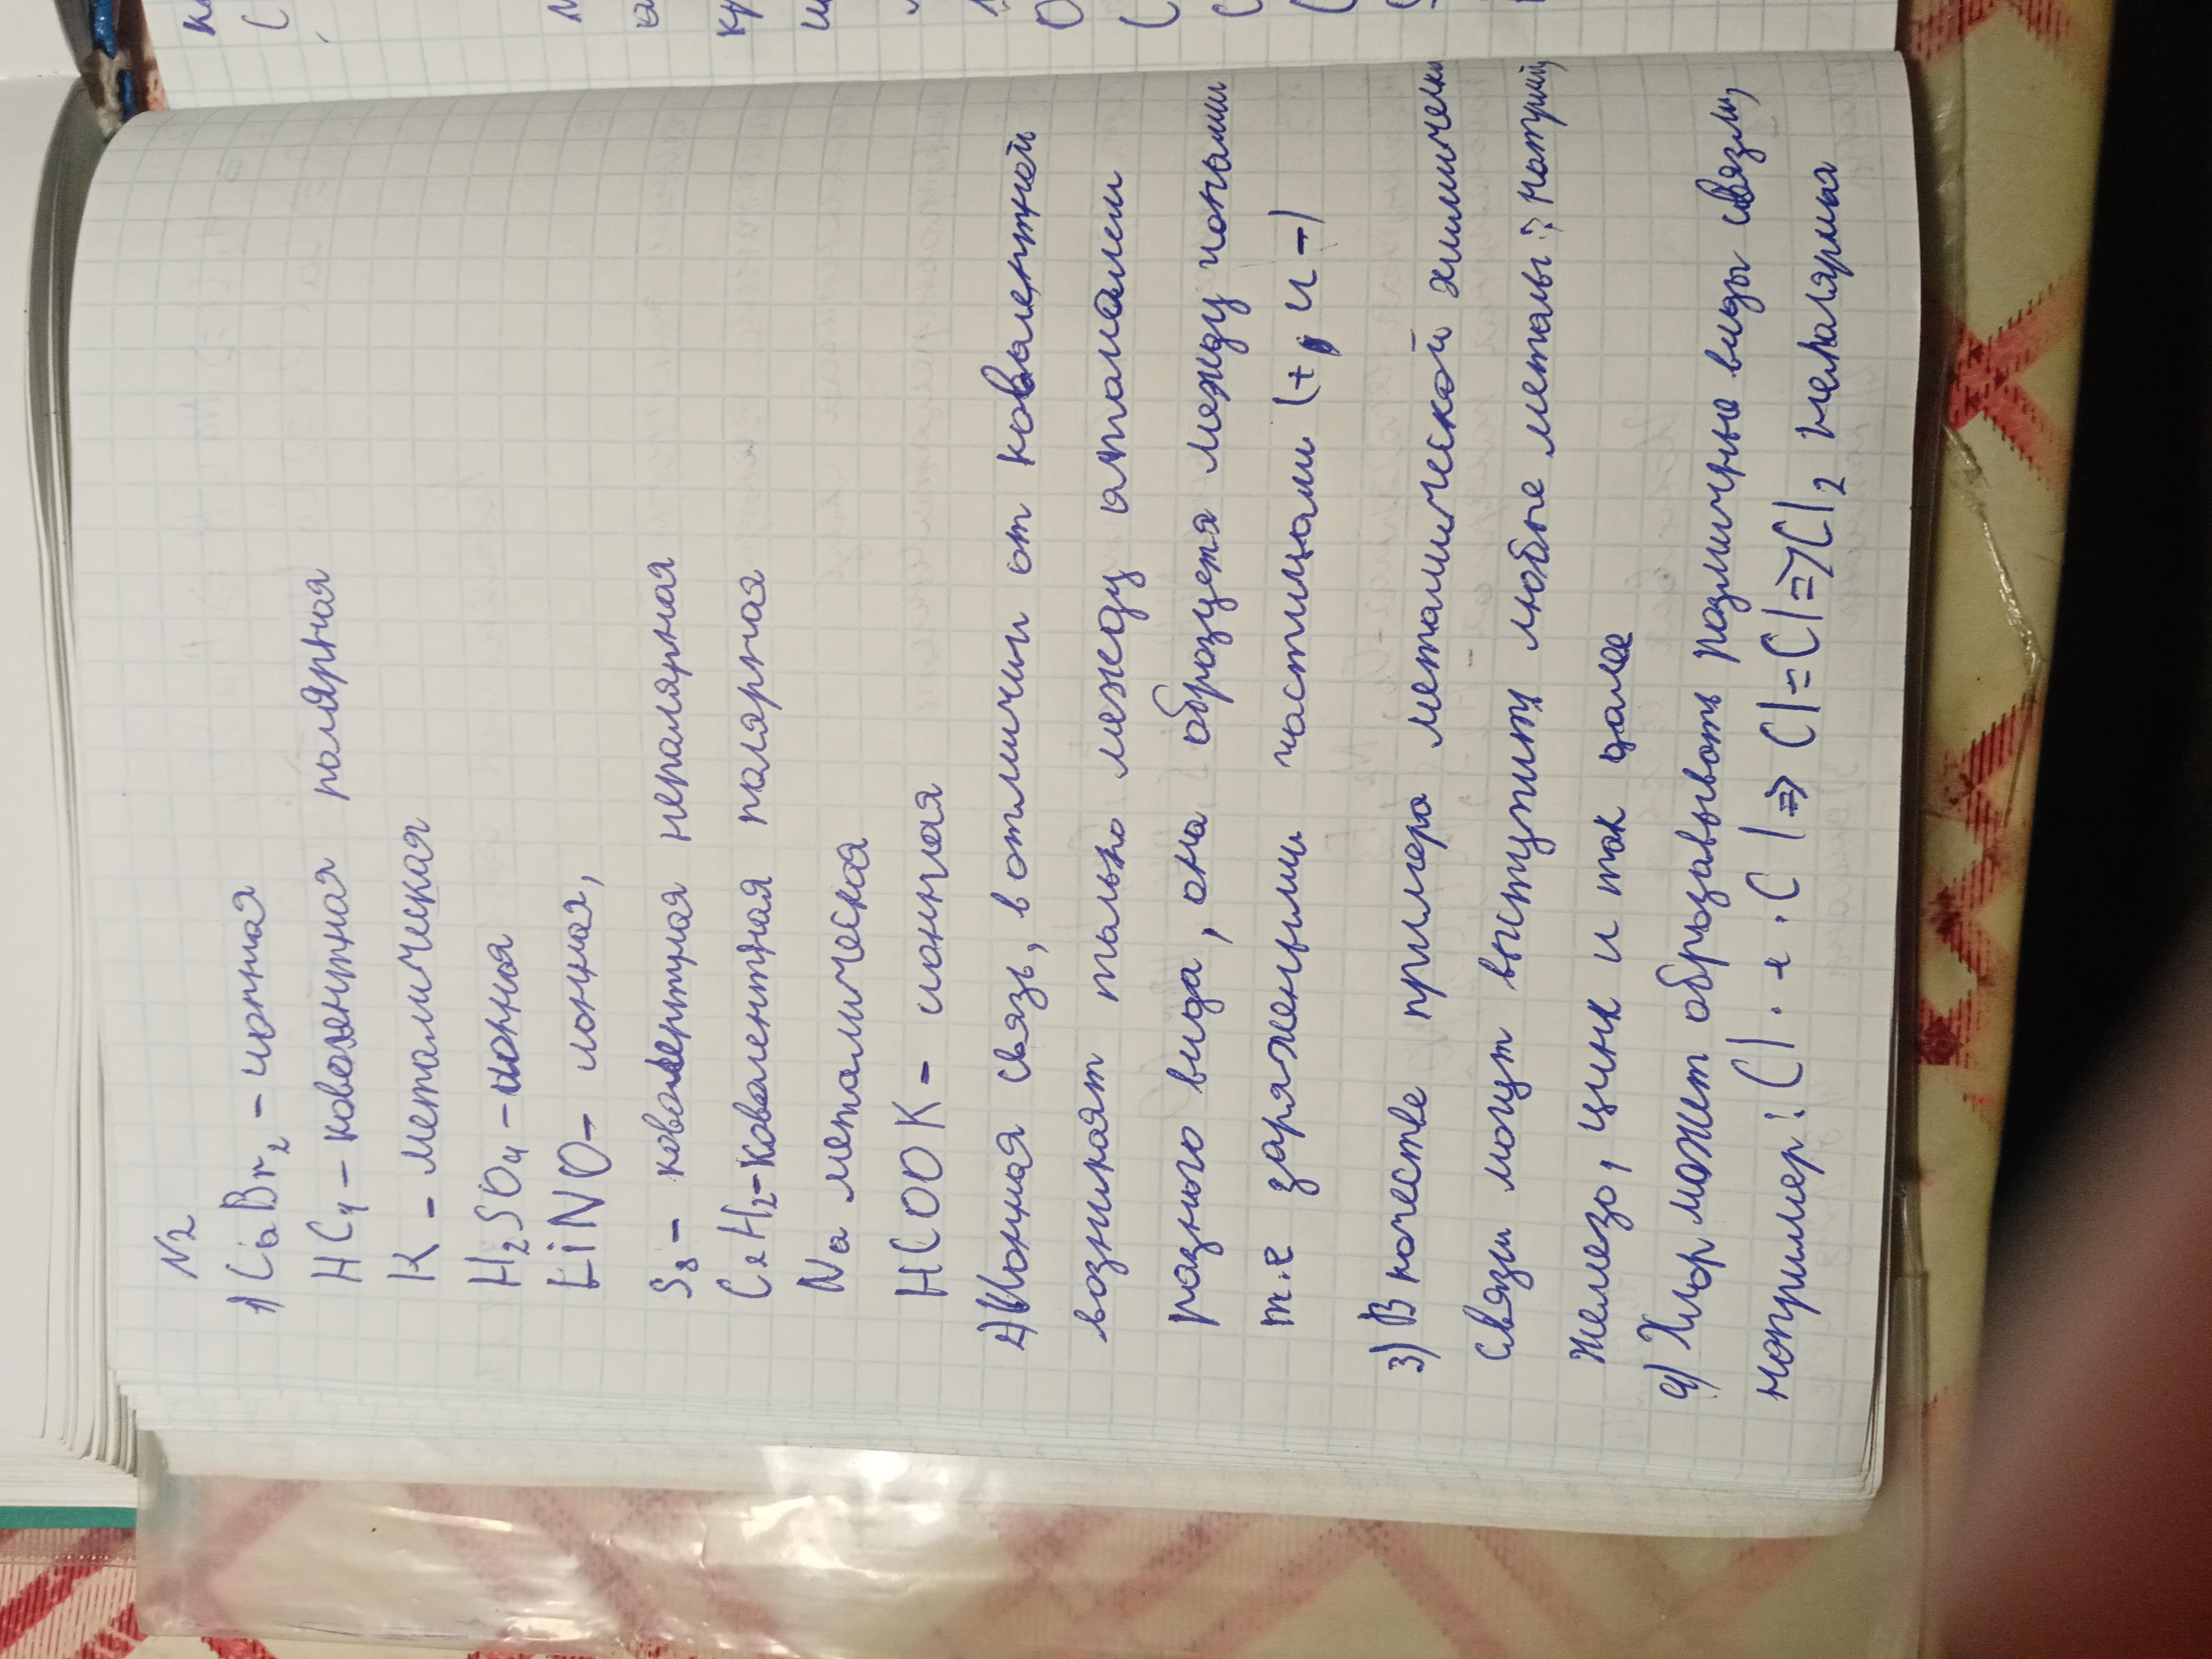 N2
1) CaBr2 - ионная
HCl - ковелентная полярная
K - металическая
H2SO4 - ионная
LiNO - ионная,
S8 - ковалентная неполярная
C2H2 - ковалентная полярная
Na металическая
HCOOK - ионная
2) Ионная связь, в отличии от ковалентной
возникают только между атомами
разного вида, она образуетя между ионами
т.е заряженными частицами (+ и -)
3) В качестве примера металической химически
связи могут выступить любые металы: натрий,
железо, цинк и так далее
4) Хлор может обрзавывать различные виды связи,
например: Cl· + ·Cl => Cl-Cl => Cl2 неполярная